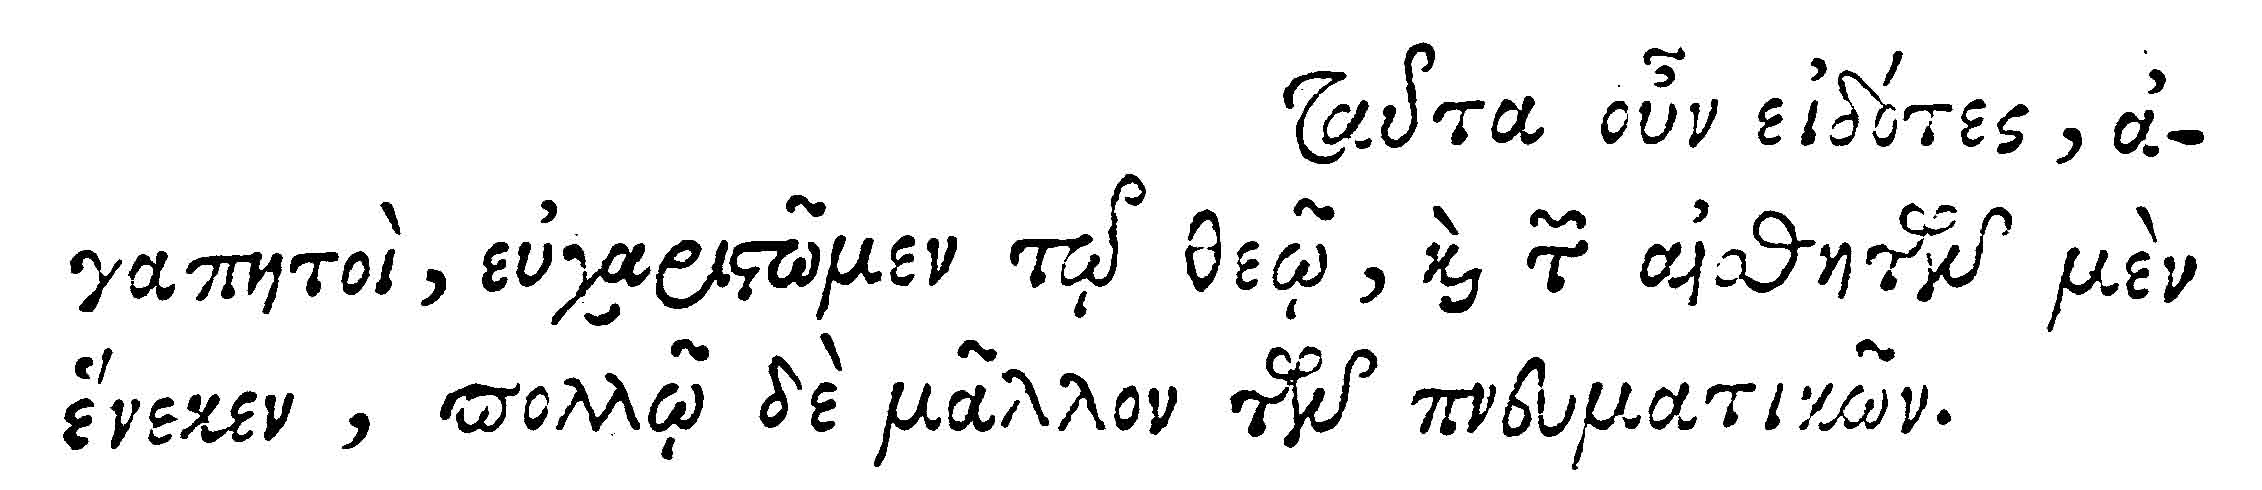 Ταῦτα οὖν εἰδότες, ἀ-
γαπητοὶ, εὐχαριστῶμεν τῷ θεῷ, καὶ τῶν αἰσθητῶν μὲν
ἕνεκεν, πολλῷ δὲ μᾶλλον τῶν πνευματικῶν.